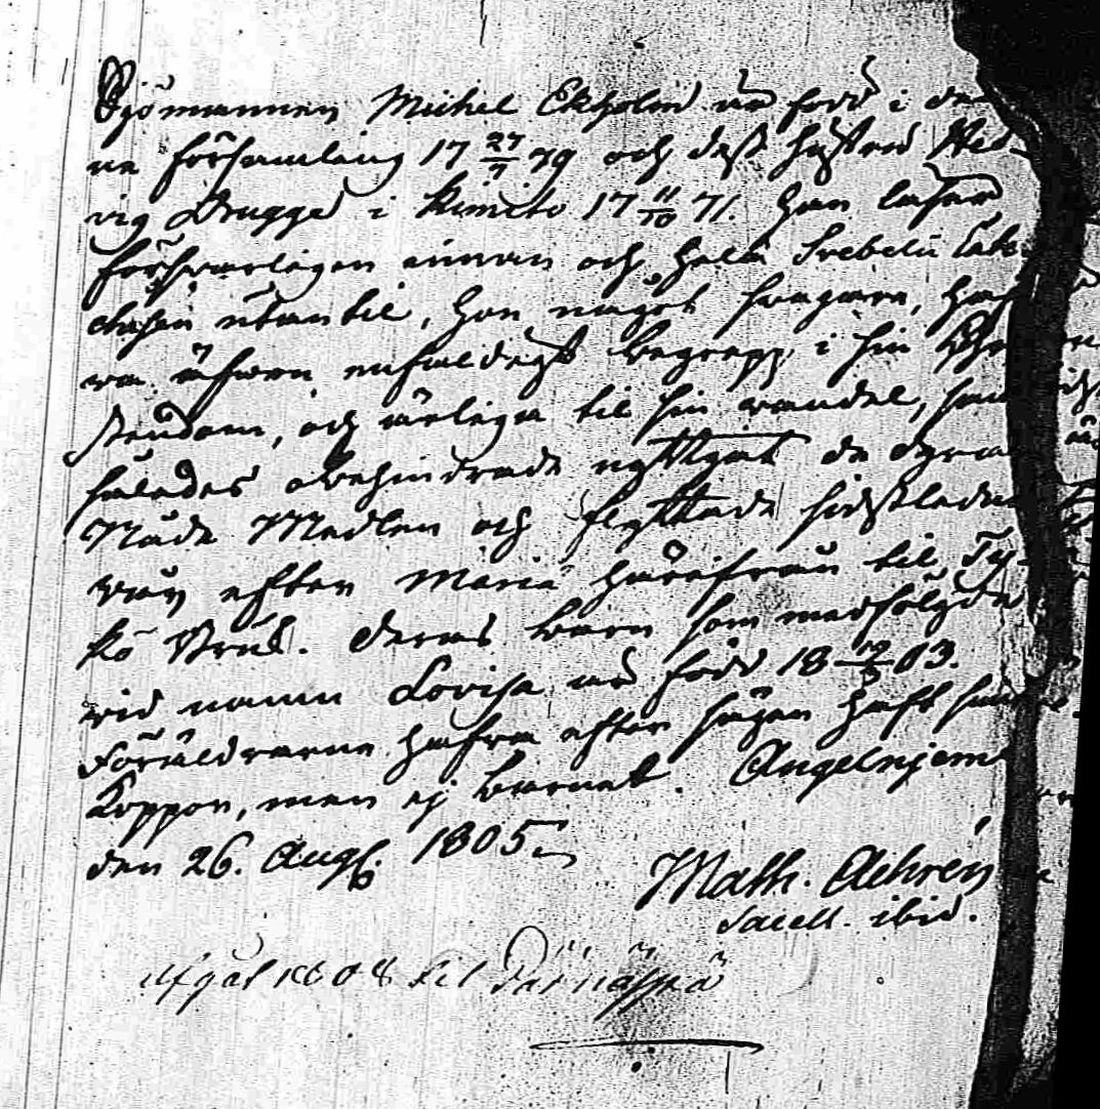 Sjömannen Michel Ekholm är född i den-
na församling 17 27/7 79 och dess hustru Hed-
vig Brugge i Kimito 17 11/10 71. Han läser
försvarligen innan och hela Svebelii Cate-
chesen utantil, hon något svagare,
enfaldigt begrepp i sin Chri-
stendom, och ärliga til sin vandel,
således obehindrade nyttjat de dyra
Nåde Medlen och flyttade sidstledne
våren efter Mariæ til Ty-
kö Bruk. Deras barn som medföljde
vid namn Lovisa är född 18 19/3 03.
Föräldrarne hafva efter sägen haft
Koppor, men ej barnet. Angelnjemi
den 26. Aug. 1805.
Math. Achrén
Sacell. ibid.
afgåt 1808 til